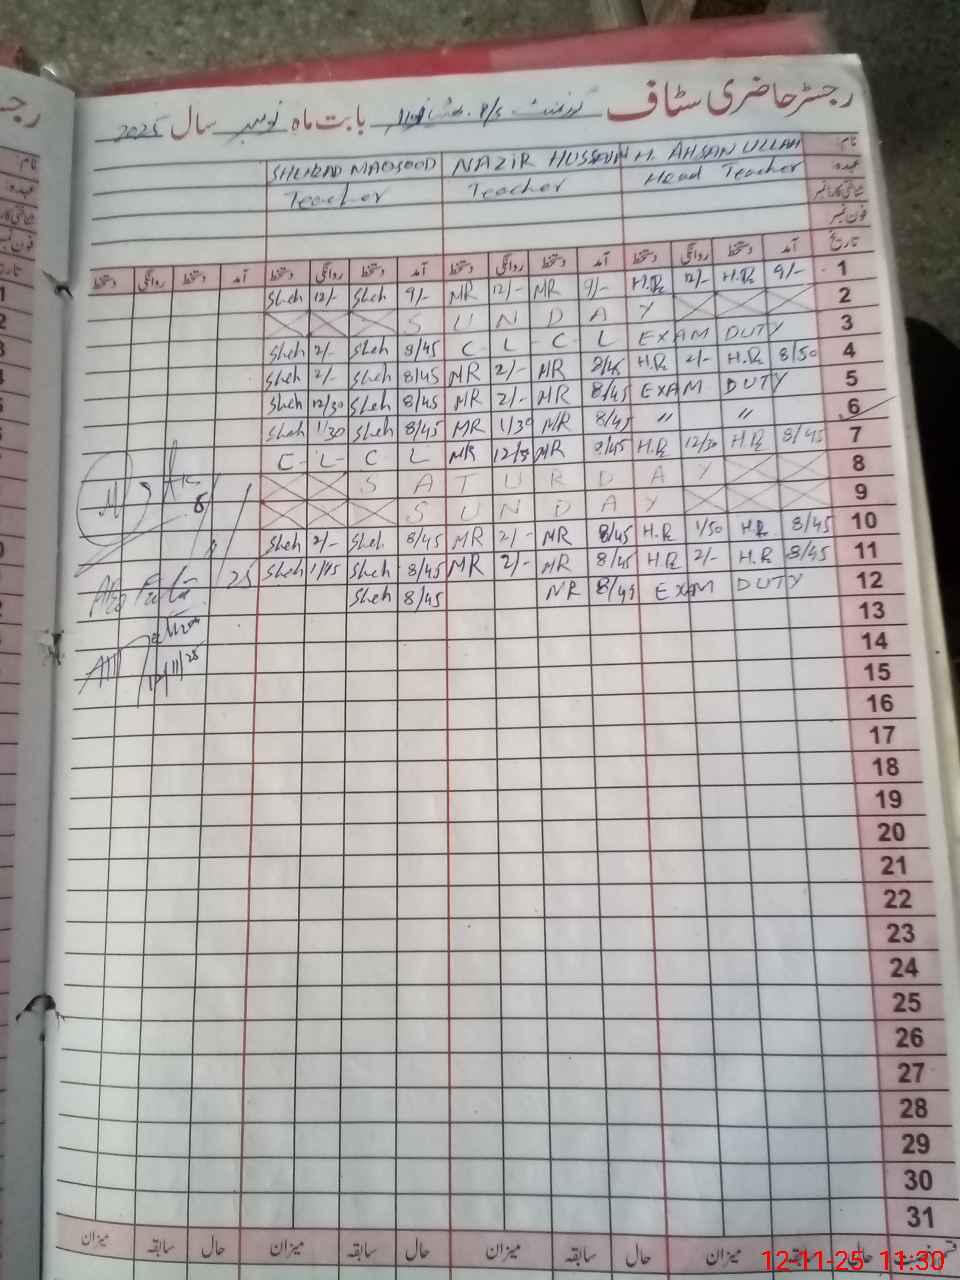 رجسٹر حاضری سٹاف گورنمنٹ P/S بابت ماہ نومبر سال 2025
نام: M. AHSAN ULLAH NAZIR HUSSAIN SHEHZAD MAQSOOD
عہدہ: Head Teacher Teacher Teacher
شناختی کارڈ نمبر
فون نمبر
تاریخ آمد دستخط روانگی دستخط آمد دستخط روانگی دستخط آمد دستخط روانگی دستخط آمد دستخط روانگی دستخط
Sheh 12/- Sheh 9/- MR 12/- MR 9/- H.R 12/- H.R 9/- 1
S U N D A Y 2
Sheh 2/- Sheh 8/45 C L C L EXAM DUTY 3
Sheh 2/- Sheh 8/45 MR 2/- MR 8/45 H.R 2/- H.R 8/50 4
Sheh 12/30 Sheh 8/45 MR 2/- MR 8/45 EXAM DUTY 5
Sheh 1/30 Sheh 8/45 MR 1/30 MR 8/45 〃 〃 6
C L C L MR 12/30 MR 8/45 H.R 12/30 H.R 8/45 7
S A T U R D A Y 8
S U N D A Y 9
Sheh 2/- Sheh 8/45 MR 2/- MR 8/45 H.R 1/50 H.R 8/45 10
Sheh 1/45 Sheh 8/45 MR 2/- MR 8/45 H.R 2/- H.R 8/45 11
Sheh 8/45 MR 8/45 EXAM DUTY 12
13
14
15
16
17
18
19
20
21
22
23
24
25
26
27
28
29
30
31
حال سابقہ میزان حال سابقہ میزان حال سابقہ میزان حال سابقہ میزان
12-11-25 11:30